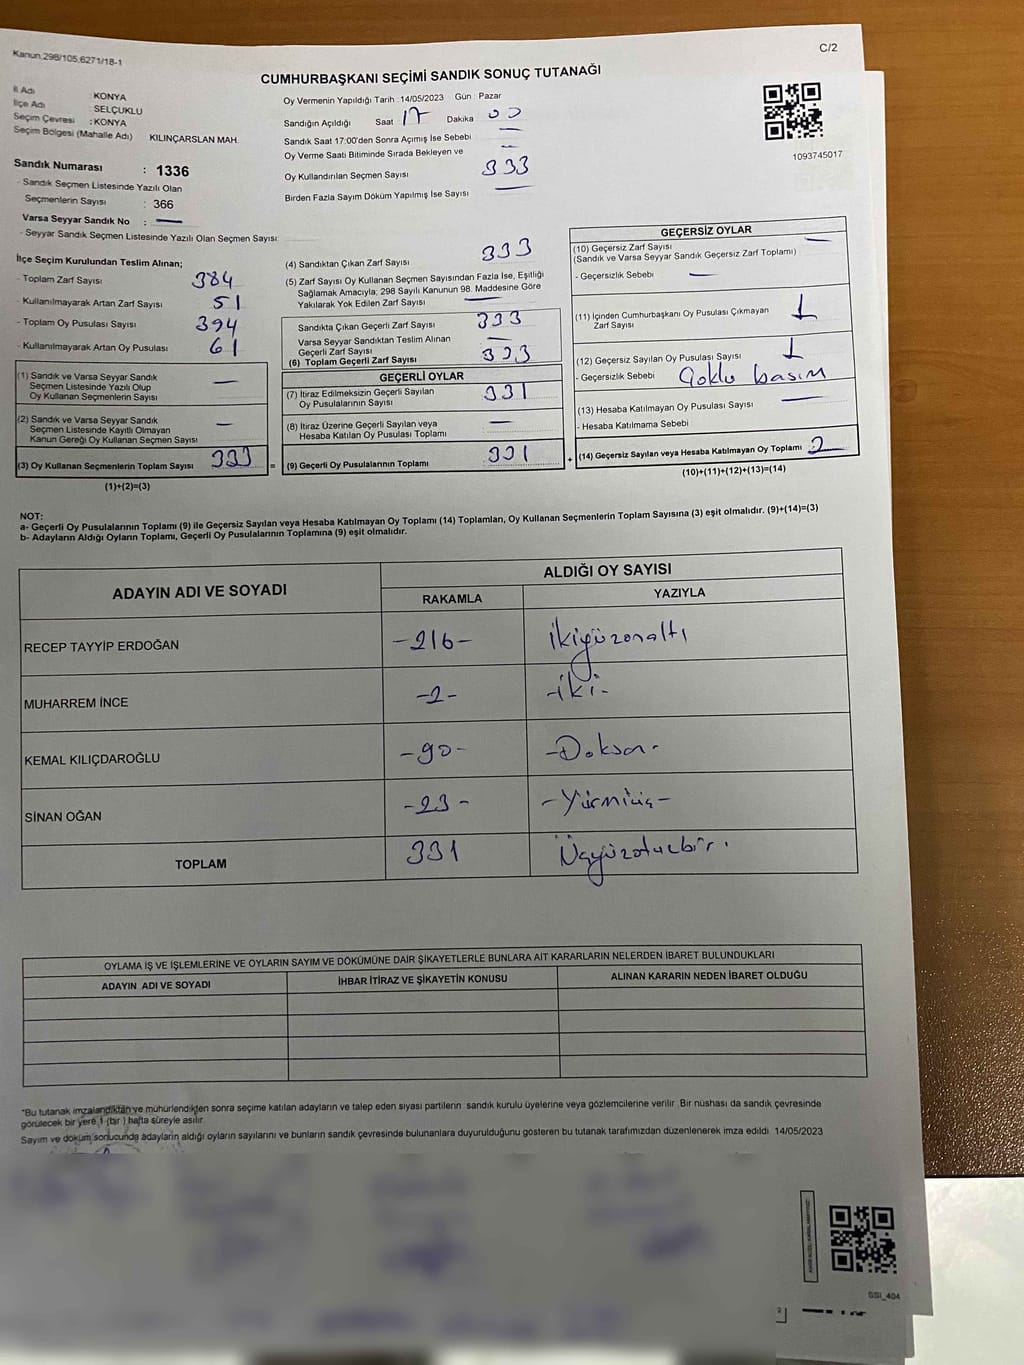 Kanun,298/105,6271/18-1
C/2
CUMHURBAŞKANI SEÇİMİ SANDIK SONUÇ TUTANAĞI
İl Adı : KONYA
İlçe Adı : SELÇUKLU
Seçim Çevresi : KONYA
Seçim Bölgesi (Mahalle Adı) KILINÇARSLAN MAH.
Sandık Numarası : 1336
- Sandık Seçmen Listesinde Yazılı Olan
Seçmenlerin Sayısı : 366
Varsa Seyyar Sandık No : —
- Seyyar Sandık Seçmen Listesinde Yazılı Olan Seçmen Sayısı:
Oy Vermenin Yapıldığı Tarih :14/05/2023 Gün : Pazar
Sandığın Açıldığı Saat 17 Dakika 00
Sandık Saat 17:00'den Sonra Açımış İse Sebebi —
Oy Verme Saati Bitiminde Sırada Bekleyen ve —
Oy Kullandırılan Seçmen Sayısı 333
Birden Fazla Sayım Döküm Yapılmış İse Sayısı —
1093745017
İlçe Seçim Kurulundan Teslim Alınan;
- Toplam Zarf Sayısı 384
- Kullanılmayarak Artan Zarf Sayısı 51
- Toplam Oy Pusulası Sayısı 394
- Kullanılmayarak Artan Oy Pusulası 61
(1) Sandık ve Varsa Seyyar Sandık
Seçmen Listesinde Yazılı Olup
Oy Kullanan Seçmenlerin Sayısı —
(2) Sandık ve Varsa Seyyar Sandık
Seçmen Listesinde Kayıtlı Olmayan
Kanun Gereği Oy Kullanan Seçmen Sayısı —
(3) Oy Kullanan Seçmenlerin Toplam Sayısı 333 =
(1)+(2)=(3)
(4) Sandıktan Çıkan Zarf Sayısı 333
(5) Zarf Sayısı Oy Kullanan Seçmen Sayısından Fazla İse, Eşitliği
Sağlamak Amacıyla; 298 Sayılı Kanunun 98. Maddesine Göre
Yakılarak Yok Edilen Zarf Sayısı —
Sandıkta Çıkan Geçerli Zarf Sayısı 333
Varsa Seyyar Sandıktan Teslim Alınan
Geçerli Zarf Sayısı —
(6) Toplam Geçerli Zarf Sayısı 333
GEÇERLİ OYLAR
(7) İtiraz Edilmeksizin Geçerli Sayılan
Oy Pusulalarının Sayısı 331
(8) İtiraz Üzerine Geçerli Sayılan veya
Hesaba Katılan Oy Pusulası Toplamı —
(9) Geçerli Oy Pusulalarının Toplamı 331 +
GEÇERSİZ OYLAR
(10) Geçersiz Zarf Sayısı —
(Sandık ve Varsa Seyyar Sandık Geçersiz Zarf Toplamı)
- Geçersizlik Sebebi —
(11) İçinden Cumhurbaşkanı Oy Pusulası Çıkmayan
Zarf Sayısı 1
(12) Geçersiz Sayılan Oy Pusulası Sayısı 1
- Geçersizlik Sebebi Çoklu basım
(13) Hesaba Katılmayan Oy Pusulası Sayısı —
- Hesaba Katılmama Sebebi
(14) Geçersiz Sayılan veya Hesaba Katılmayan Oy Toplamı 2
(10)+(11)+(12)+(13)=(14)
NOT:
a- Geçerli Oy Pusulalarının Toplamı (9) ile Geçersiz Sayılan veya Hesaba Katılmayan Oy Toplamı (14) Toplamları, Oy Kullanan Seçmenlerin Toplam Sayısına (3) eşit olmalıdır. (9)+(14)=(3)
b- Adayların Aldığı Oyların Toplamı, Geçerli Oy Pusulalarının Toplamına (9) eşit olmalıdır.
ADAYIN ADI VE SOYADI ALDIĞI OY SAYISI
RAKAMLA YAZIYLA
RECEP TAYYİP ERDOĞAN -216- İkiyüzonaltı
MUHARREM İNCE -2- -iki-
KEMAL KILIÇDAROĞLU -90- -Doksan-
SİNAN OĞAN -23- -Yirmiüç-
TOPLAM 331 Üçyüzotuzbir.
OYLAMA İŞ VE İŞLEMLERİNE VE OYLARIN SAYIM VE DÖKÜMÜNE DAİR ŞİKAYETLERLE BUNLARA AİT KARARLARIN NELERDEN İBARET BULUNDUKLARI
ADAYIN ADI VE SOYADI İHBAR İTİRAZ VE ŞİKAYETİN KONUSU ALINAN KARARIN NEDEN İBARET OLDUĞU
*Bu tutanak imzalandıktan ve mühürlendikten sonra seçime katılan adayların ve talep eden siyasi partilerin sandık kurulu üyelerine veya gözlemcilerine verilir. Bir nüshası da sandık çevresinde
görülecek bir yere 1 (bir ) hafta süreyle asılır.
Sayım ve döküm sonucunda adayların aldığı oyların sayılarını ve bunların sandık çevresinde bulunanlara duyurulduğunu gösteren bu tutanak tarafımızdan düzenlenerek imza edildi. 14/05/2023
SSI_404
2